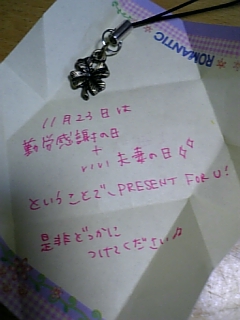 ROMANTIC
11月23日は
勤労感謝の日
+
いい夫妻の日
ということで、PRESENT FOR U!
是非どっかに
つけてください♪